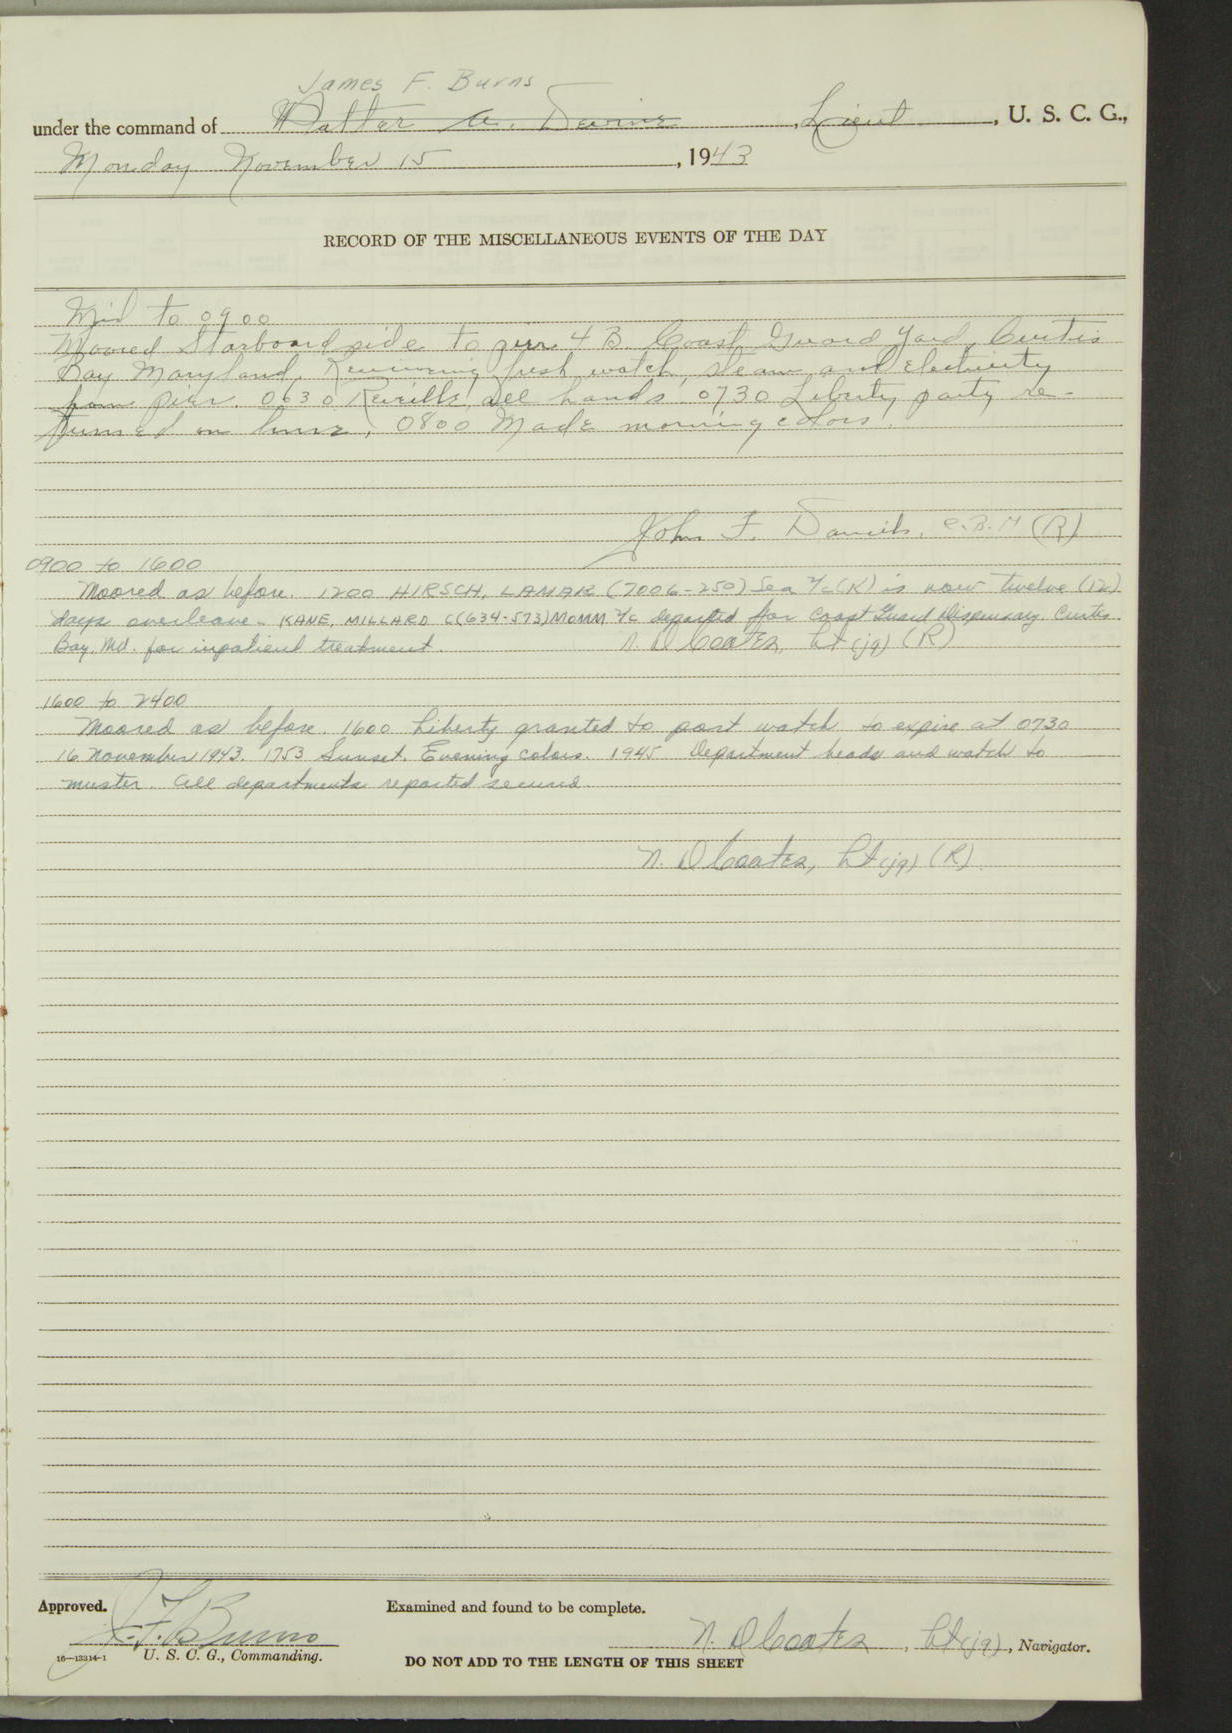 James F. Burns
under the command of Walter A. Devine, Lieut, U. S. C. G.,
Monday November 15, 1943
RECORD OF THE MISCELLANEOUS EVENTS OF THE DAY
Mid to 0900
Moored Starboard side to pier 4 B. Coast Guard Yard, Curtis
Bay Maryland, Receiving fresh watch, steam and Electricity
from pier. 0630 Reveille, all hands. 0730 Liberty party re-
turned on time, 0800 Made morning colors.
John F. Daniels, C.B.M (R)
0900 to 1600
Moored as before. 1200 HIRSCH, LAMAR (7006-250) Sea 2/c (R) is now twelve (12)
days overleave. KANE, MILLARD C(634-573) MoMM 2/c departed for Coast Guard Dispensary, Curtis
Bay, Md. for inpatient treatment. N. D Coates, Lt (jg) (R)
1600 to 2400
Moored as before. 1600 Liberty granted to port watch, to expire at 0730
16 November 1943. 1753 Sunset. Evening colors. 1945 Department heads and watch to
muster. All departments reported secured.
N. D Coates, Lt (jg) (R)
Approved. Examined and found to be complete.
J. F. Burns N. D Coates, Lt (jg), Navigator.
16—13314-1 U. S. C. G., Commanding. DO NOT ADD TO THE LENGTH OF THIS SHEET